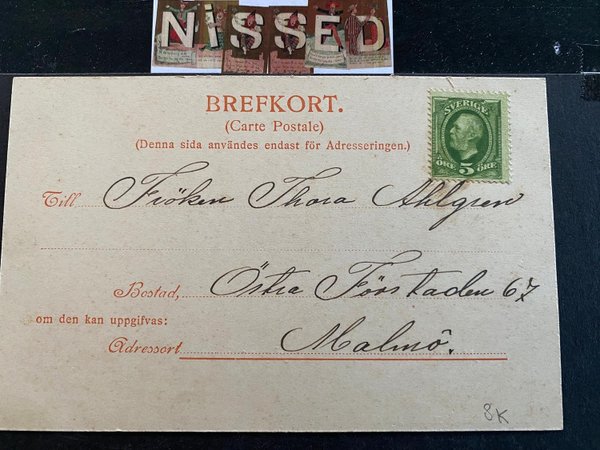 NiSSED
BREFKORT.
(Carte Postale)
(Denna sida användes endast för Adresseringen.)
SVERIGE
5 ÖRE 5 ÖRE
Till Fröken Thora Ahlgren
Bostad, Östra Förstaden 67
om den kan uppgifvas:
Adressort Malmö.
8K